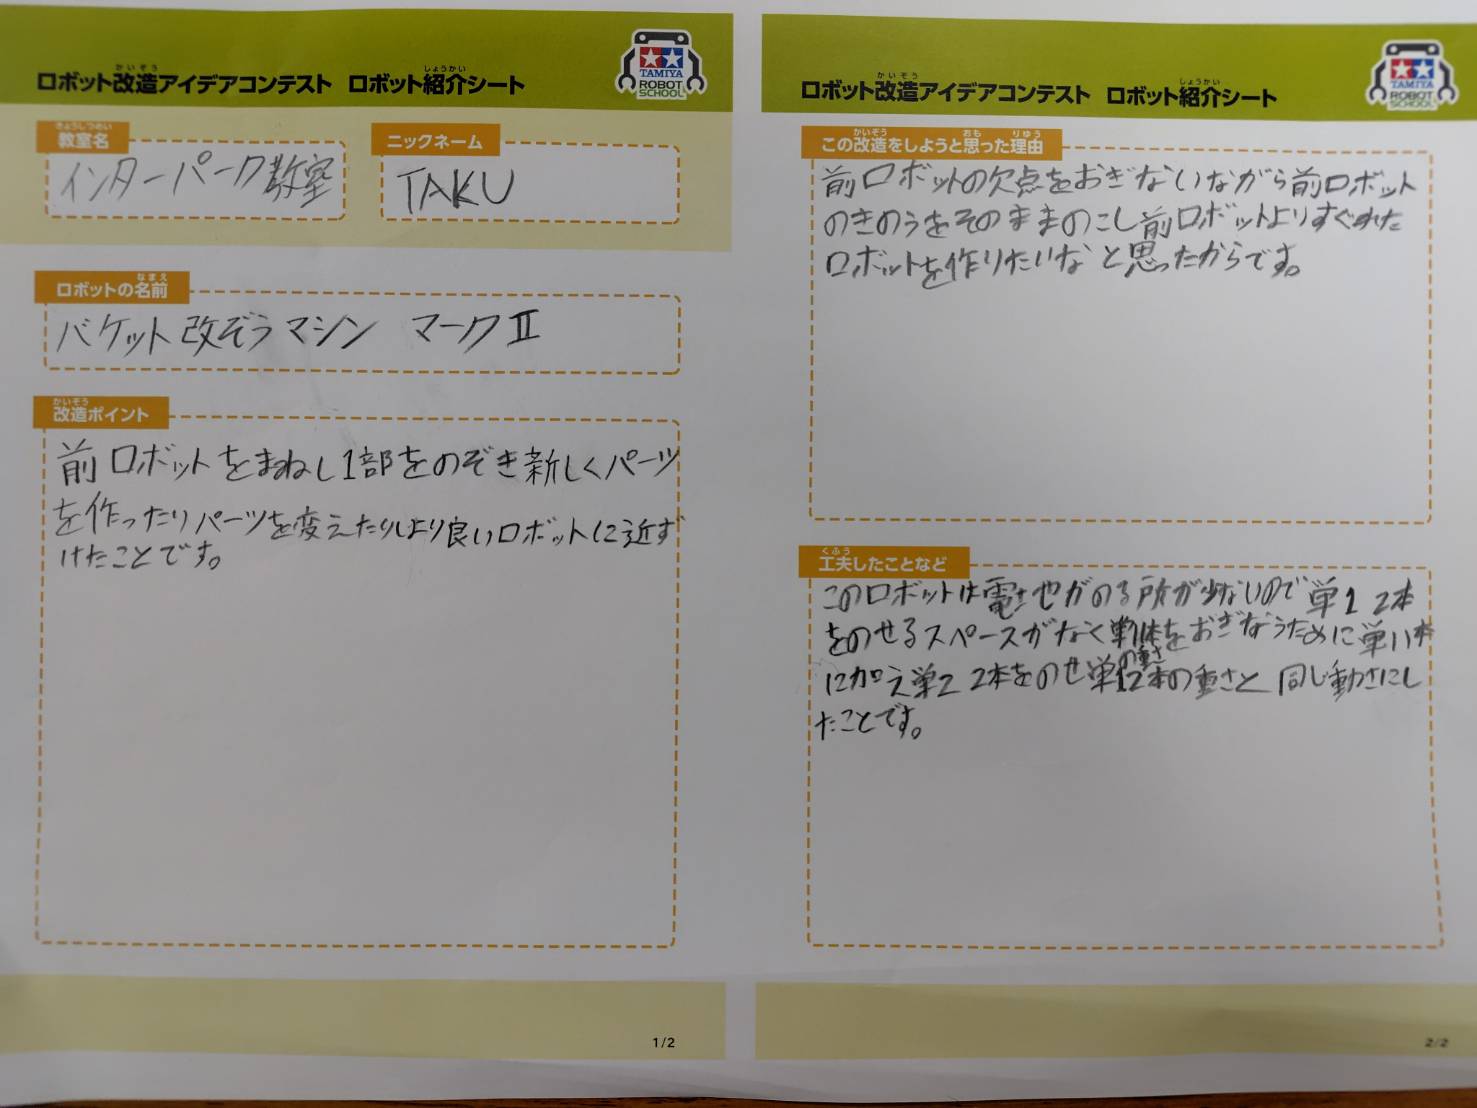 ロボット改造アイデアコンテスト ロボット紹介シート
かいぞう しょうかい
TAMIYA
ROBOT
SCHOOL
教室名
きょうしつめい
インターパーク教室
ニックネーム
TAKU
ロボットの名前
なまえ
バケット改ぞうマシン マークⅡ
改造ポイント
かいぞう
前ロボットをまねし1部をのぞき新しくパーツ
を作ったりパーツを変えたりしより良いロボットに近ず
けたことです。
1/2
ロボット改造アイデアコンテスト ロボット紹介シート
かいぞう しょうかい
TAMIYA
ROBOT
SCHOOL
この改造をしようと思った理由
かいぞう おも りゆう
前ロボットの欠点をおぎないながら前ロボット
のきのうをそのままのこし前ロボットよりすぐれた
ロボットを作りたいなと思ったからです。
工夫したことなど
くふう
このロボットは電池がのる所が少ないので単1 2本
をのせるスペースがなく をおぎなうために単1 1本
に加え単2 2本をのせ単1 2本の重さと同じ重さにし
たことです。
2/2